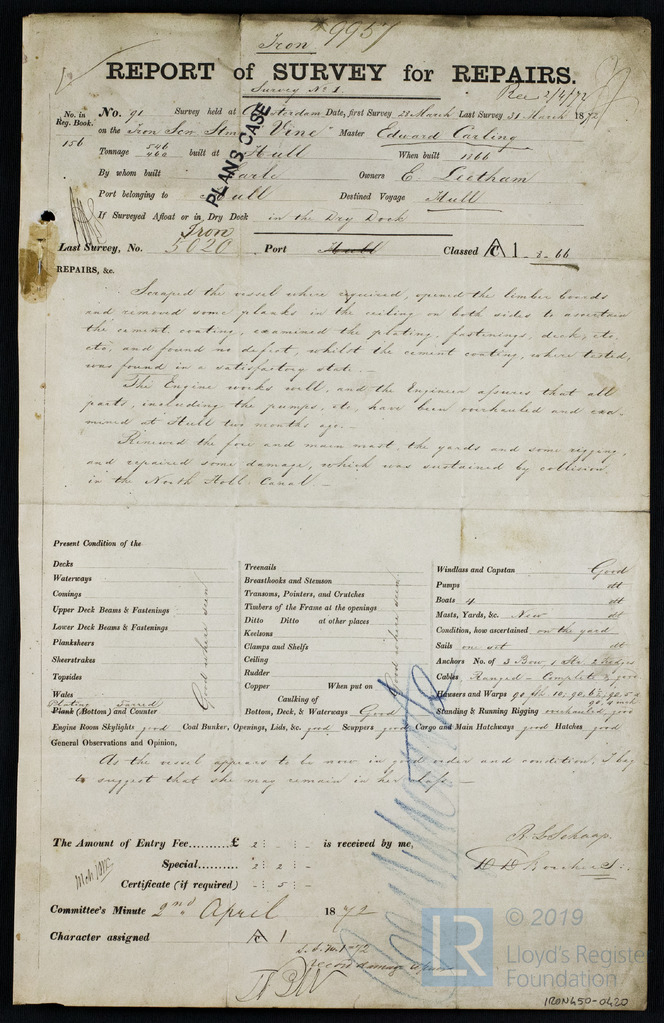 Iron 9957
REPORT of SURVEY for REPAIRS.
Survey No 1. Rec 2/4/72
No. in Reg. Book. No. 91 Survey held at Date, first Survey 28 March Last Survey 31 March 1872
156 on the Iron Scw Stmr Vine Master Edward Carling
Tonnage 546 460 built at Hull When built 1866
PLANS CASE
By whom built Earle Owners E. Leetham
Port belonging to Hull Destined Voyage Hull
If Surveyed Afloat or in Dry Dock in the Dry Dock
Iron
Last Survey, No. 5020 Port Hull Classed A 1 - 3 - 66
REPAIRS, &c.
Scraped the vessel where required, opened the limber boards
and removed some planks in the ceiling on both sides to ascertain
the cement coating, examined the plating, fastenings, deck, etc.
etc, and found no defect, whilst the cement coating, where tested,
was found in a satisfactory state.—
The Engine works well, and the Engineer assures that all
parts, including the pumps, etc, have been overhauled and exa-
mined at Hull two months ago.—
Renewed the fore and main mast, the yards and some rigging,
and repaired some damage, which was sustained by collision,
in the North Holl. Canal.—
Present Condition of the
Decks
Waterways
Comings
Upper Deck Beams & Fastenings
Lower Deck Beams & Fastenings
Planksheers
Sheerstrakes
Topsides
Wales
Plating tarred
Plank (Bottom) and Counter
Good where seen
Treenails
Breasthooks and Stemson
Transoms, Pointers, and Crutches
Timbers of the Frame at the openings
Ditto Ditto at other places
Keelsons
Clamps and Shelfs
Ceiling
Rudder
Copper When put on
Caulking of
Bottom, Deck, & Waterways Good
Good where seen
Windlass and Capstan Good
Pumps dt
Boats 4 dt
Masts, Yards, &c. New dt
Condition, how ascertained on the yard
Sails one set dt
Anchors No. of 3 Bow, 1 Str. 2 Kedges
Cables Ranged - Complete & good
Hausers and Warps
Standing & Running Rigging overhauled, good
Engine Room Skylights good Coal Bunker, Openings, Lids, &c. good Scuppers good Cargo and Main Hatchways good Hatches good
General Observations and Opinion,
As the vessel appears to be now in good order and condition, I beg
to suggest that she may remain in her class.—
The Amount of Entry Fee.......... £ 2 : : is received by me,
Special.......... 2 : 2 : -
Certificate (if required) - : 5 : -
R. L. Schaap.
Committee's Minute 2nd April 1872
Character assigned A 1
record damage repairs
LR
© 2019
Lloyd's Register
Foundation
IRON450-0420